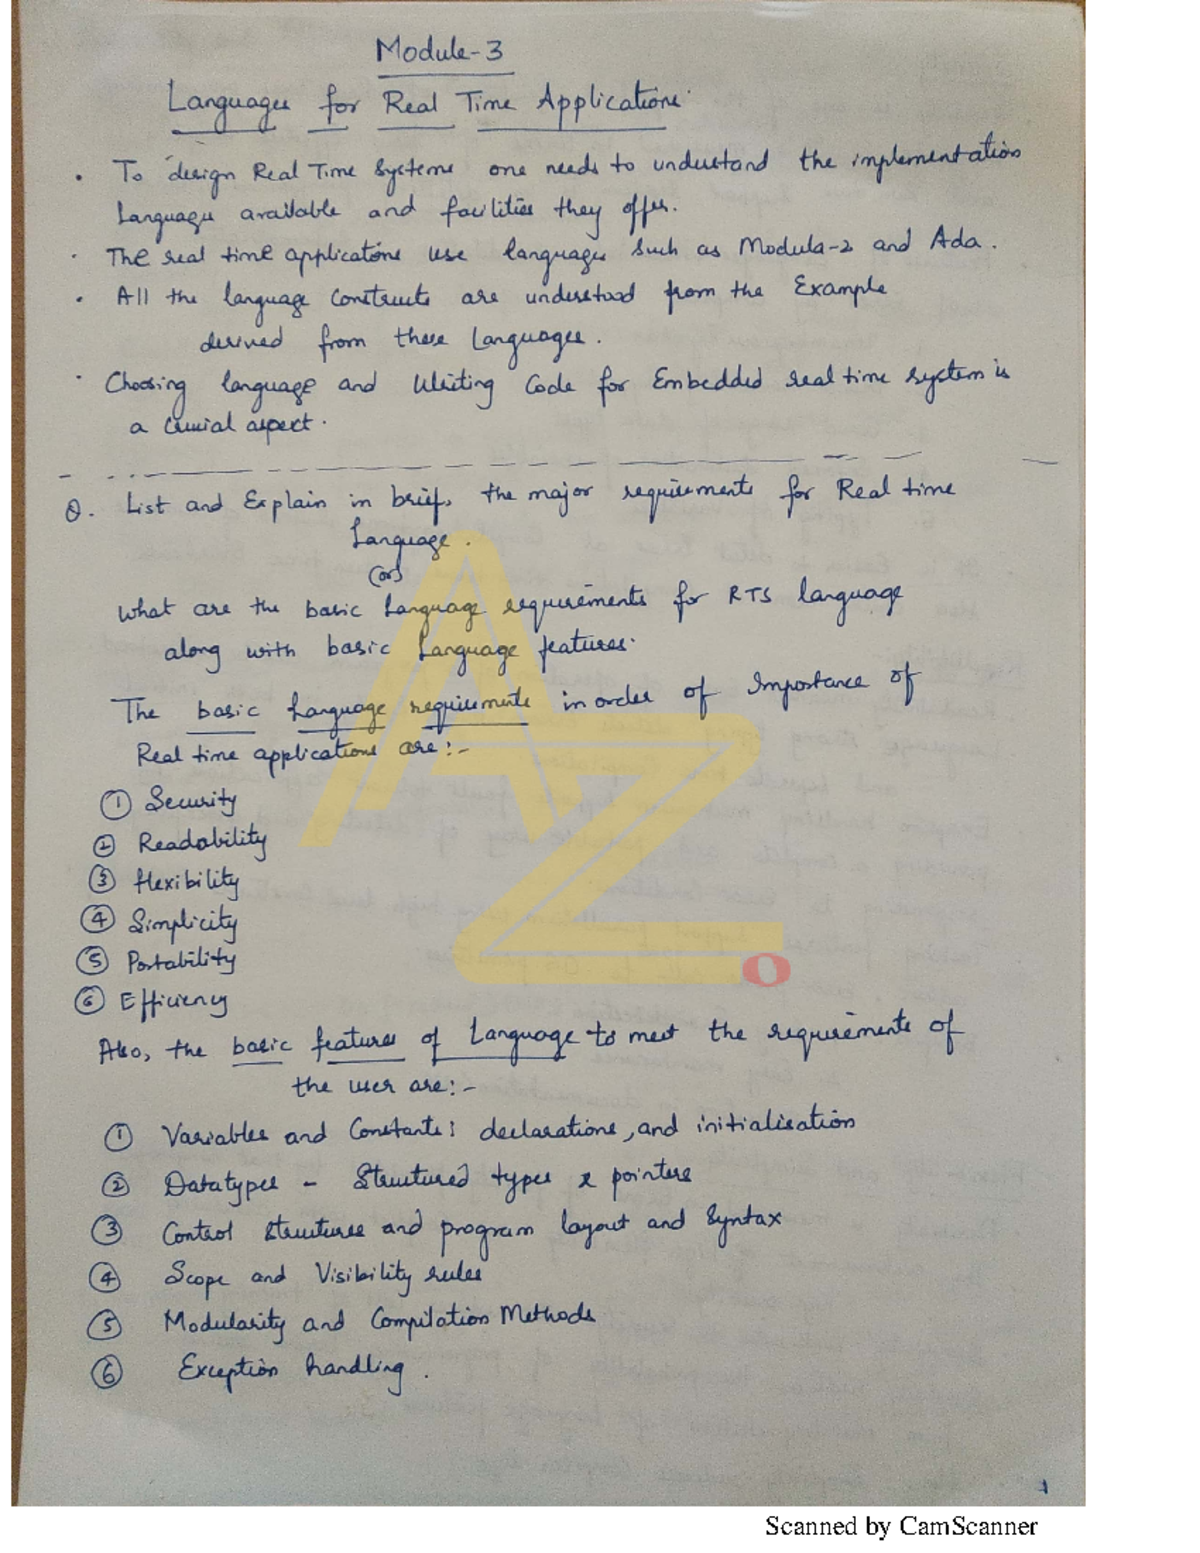 Module-3
Languages for Real Time Applications
• To design Real Time Systems one needs to understand the implementation
Languages available and facilities they offer.
• The real time applications use languages such as Modula-2 and Ada.
• All the language constructs are understood from the Example
derived from these Languages.
• Choosing language and Writing Code for Embedded real time system is
a crucial aspect.
Q. List and Explain in brief, the major requirements for Real time
Language.
(or)
What are the basic Language requirements for RTS language
along with basic Language features.
The basic language requirements in order of Importance of
Real time applications are:-
① Security
② Readability
③ flexibility
④ Simplicity
⑤ Portability
⑥ Efficiency
Also, the basic features of Language to meet the requirements of
the user are:-
① Variables and Constants: declarations, and initialisation
② Datatypes - Structured types & pointers
③ Control structures and program layout and Syntax
④ Scope and Visibility rules
⑤ Modularity and Compilation Methods
⑥ Exception handling.
1
AZO
Scanned by CamScanner